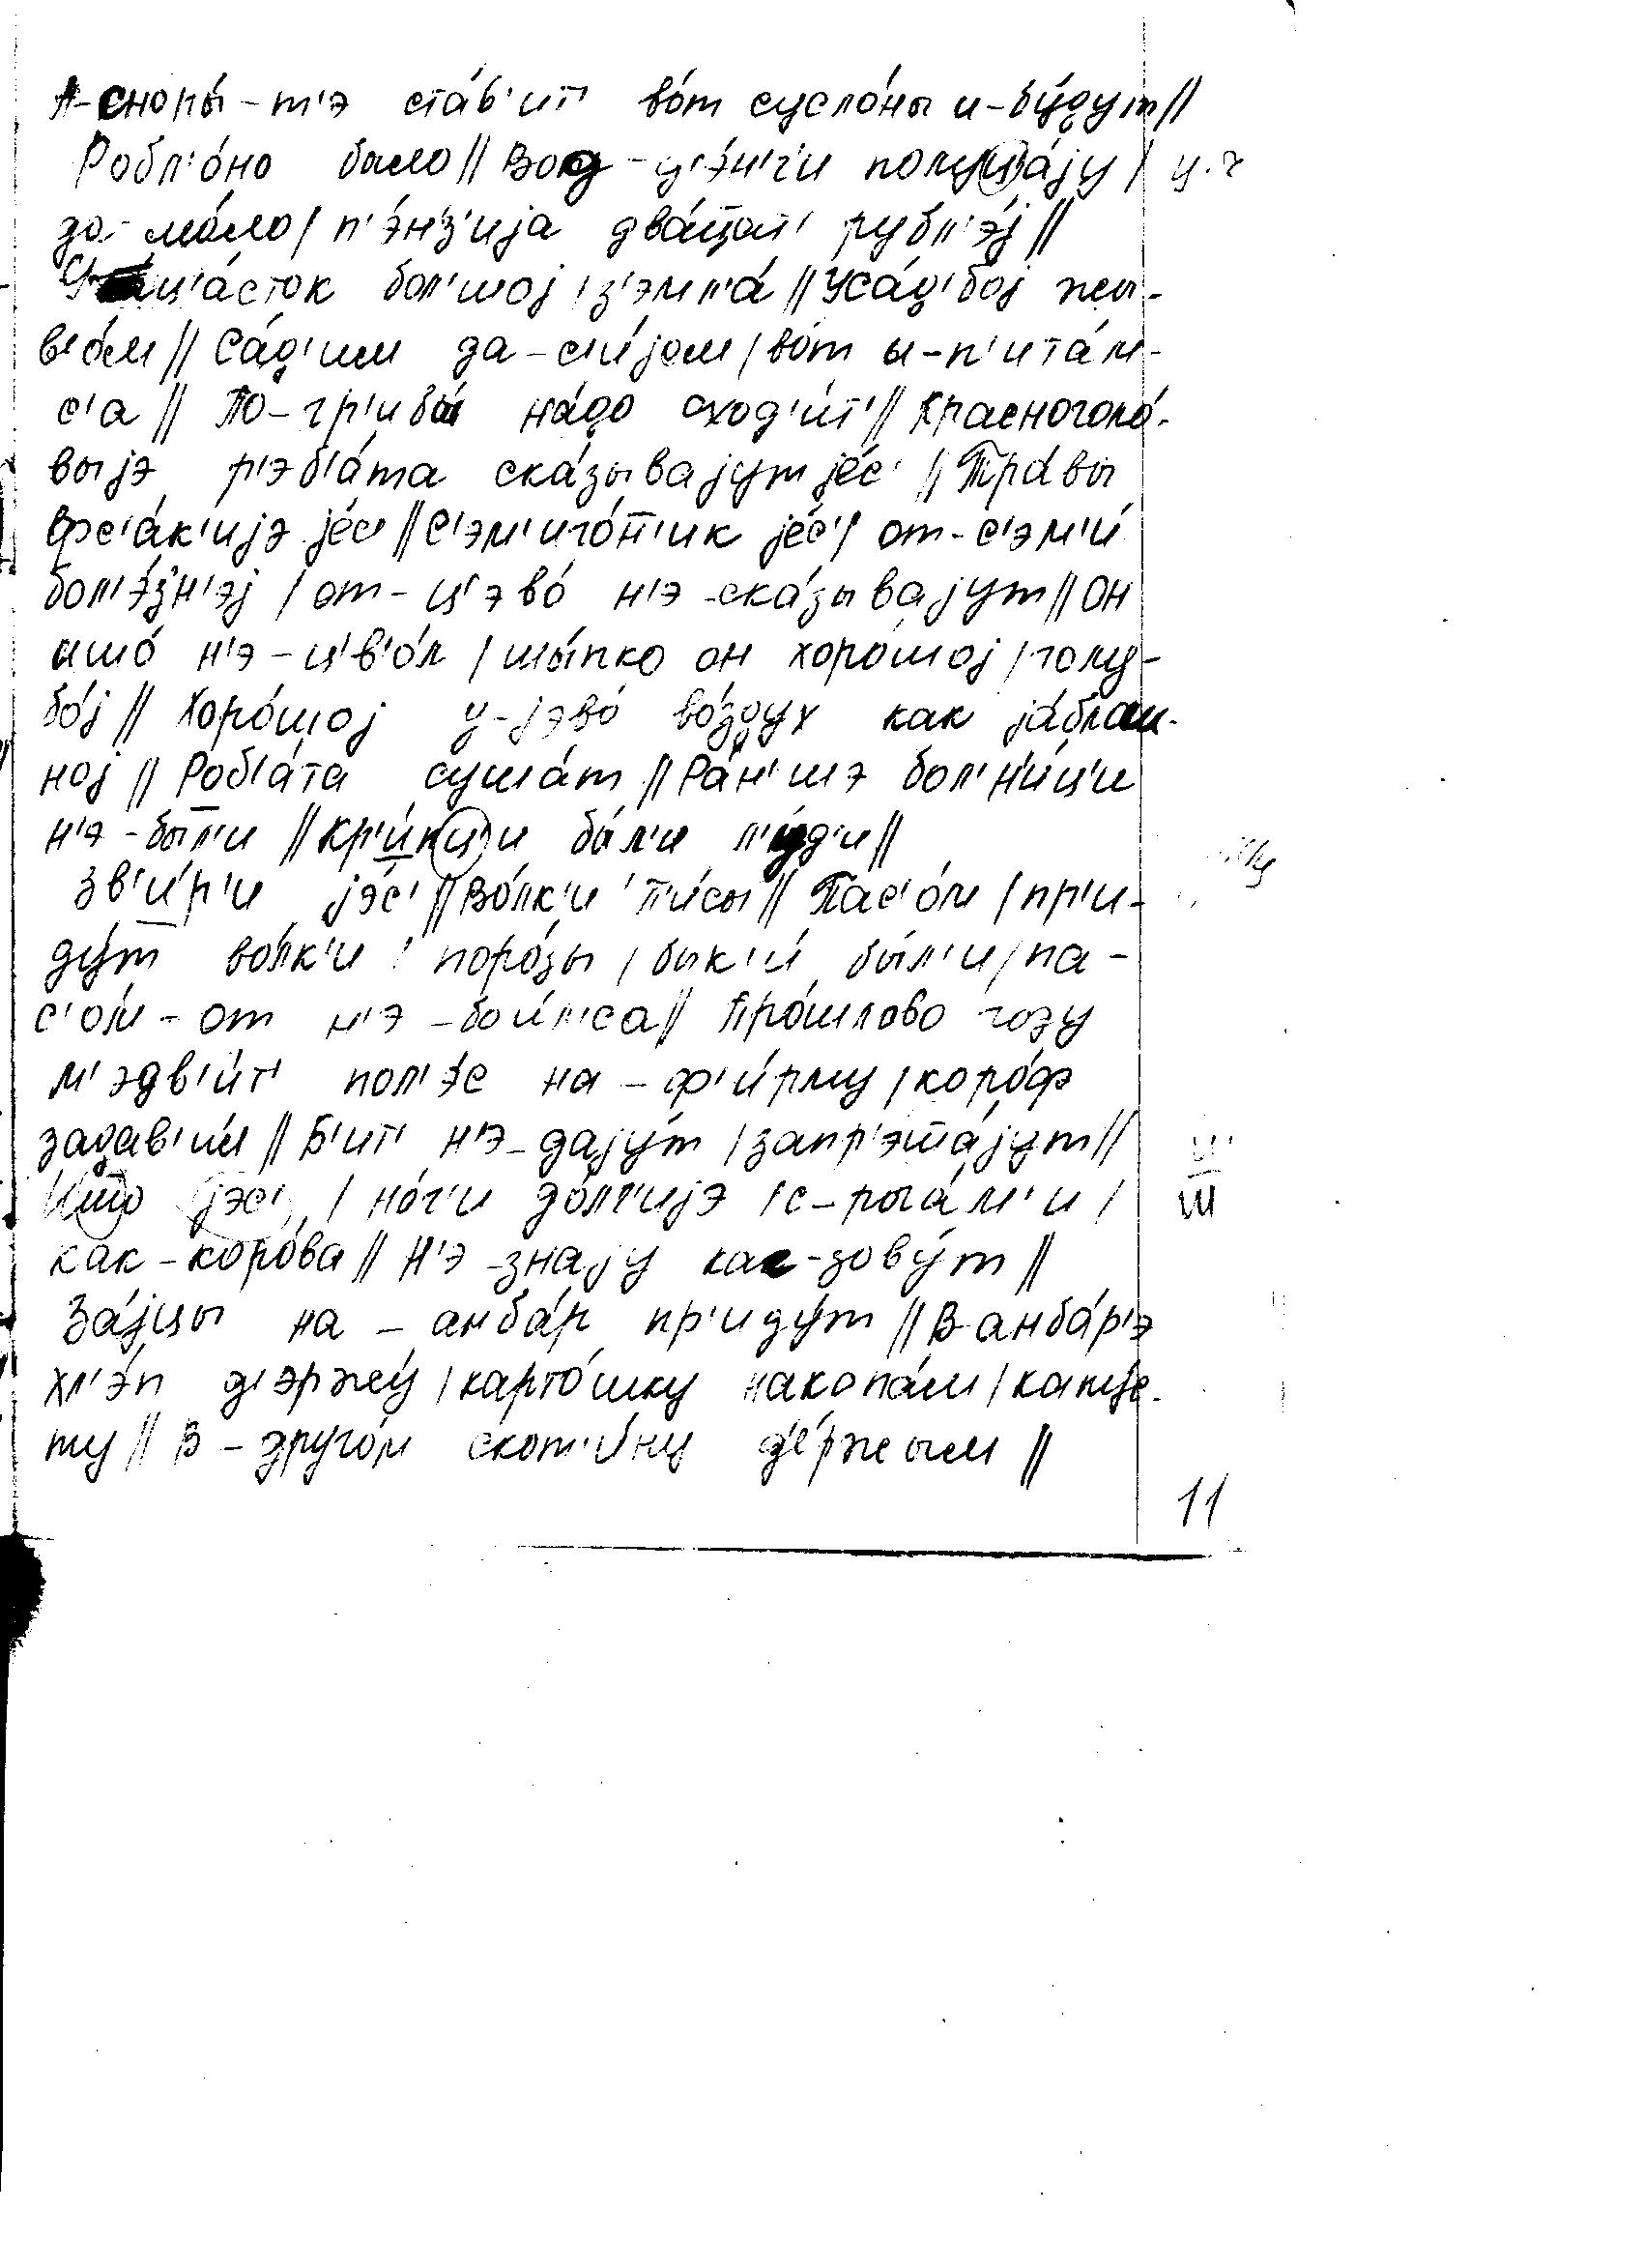 А-снопы́-т'э ста́в'ит' во́т сусло́ны и-бу́дут//
Робл'о́но было// Вод-ц'э́н'г'и полуца́jу/ ц.ч
да-ма́ло/ п'э́нз'ија два́ц̄ат' рубл'э́j//
Уц'а́сток бол'шоj /з'эмл'а́// Уса́д'боj жы-
в'о́м// Са́д'им да-си́јом/ во́т ы-п'ита́м-
с'а// По-гр'ибы́ на́до сход'и́т'// Красноголо́-
выјэ р'эб'а́та ска́зываjут је́с'// Тра́вы
фс'а́к'ијэ је́с'// С'эм'иго́т̄'ик је́с'/ от-с'эм'и́
бол'э́зн'эj / от-ц'эво́ н'э-ска́зываjут// Он
ишо́ н'э-ц'в'о́л /шы́пко он хоро́шоj /голу-
бо́j// Хоро́шоj у-јэво́ во́здух как ја́блош-
ноj// Роб'а́та суша́т// Ра́н'шэ бол'н'и́ц'и
н'э-был'и// Кр'и́пци бы́л'и л'у́д'и//
Зв'и́р'и јэ́с'// Во́лк'и л'и́сы// Пас'о́м /пр'и-
ду́т во́лк'и / поро́зы /бык'и́ бы́л'и/ па-
с'о́м-от н'э-бои́л'са// Про́шлово году
м'эдв'и́т' пол'э́с на-ф'и́рму /коро́ф
задав'и́л// Б'ит' н'э-даjу́т /запр'эш̄а́jут//
Ишо јэс' / но́г'и до́лг'ијэ /с-рога́м'и /
как-коро́ва// Н'э-знаjу как-зову́т//
За́јцы на-анба́р пр'иду́т// В анба́р'э
хл'э́п д'эржу́ /карто́шку накопа́м /капус-
ту// В-друго́м скот'и́ну д'е́ржым//
11